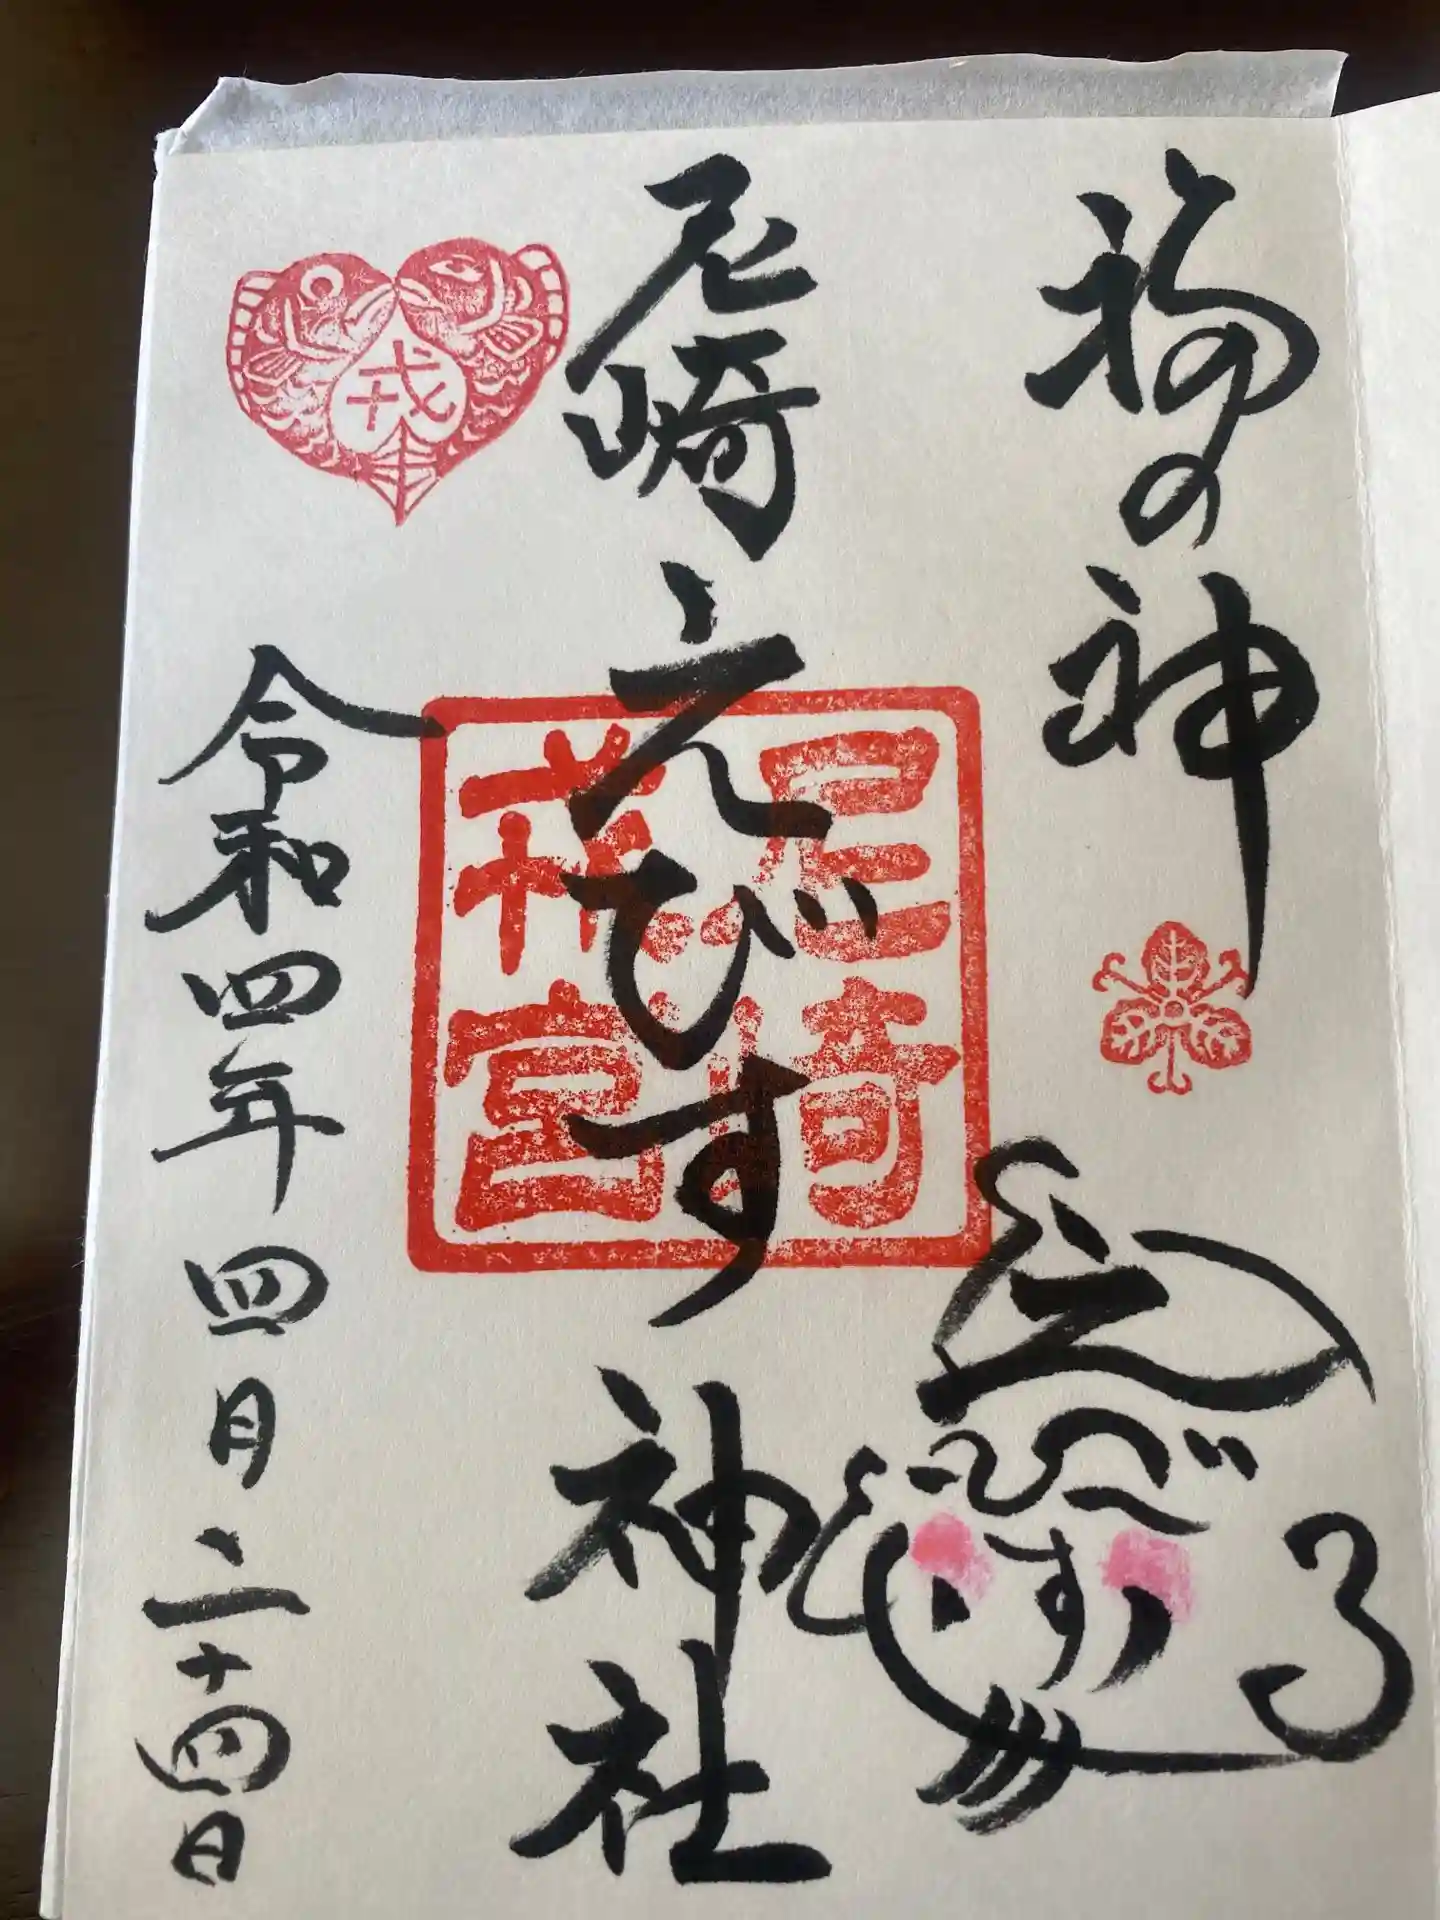 福の神
えびす
尼崎えびす神社
尼崎
戎宮
戎
令和四年四月二十四日